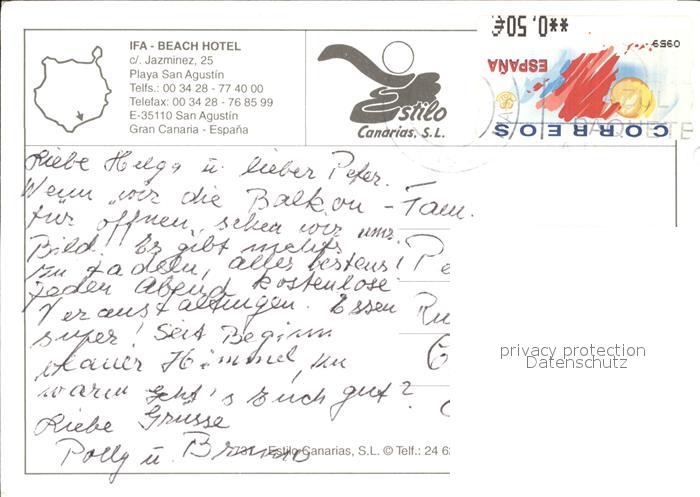 IFA - BEACH HOTEL
c/. Jazminez, 25
Playa San Agustín
Telfs.: 00 34 28 - 77 40 00
Telefax: 00 34 28 - 76 85 99
E-35110 San Agustín
Gran Canaria - España
Estilo
Canarias, S.L.
**0,50€
0959
ESPAÑA
CORREOS
PAQUETE
Liebe Helga u. lieber Peter.
Wenn wir die Balkon-
tür öffnen, sehen wir
Bild! Es gibt nichts
zu tadeln, alles bestens!
Jeden Abend kostenlose
Veranstaltungen. Essen
super! Seit Beginn
blauer Himmel,
warm geht's Euch gut?
Liebe Grüsse
Polly u. Bruno
Fam.
Pe
Ru
6
privacy protection
Datenschutz
Estilo Canarias, S.L. © Telf.: 24 6